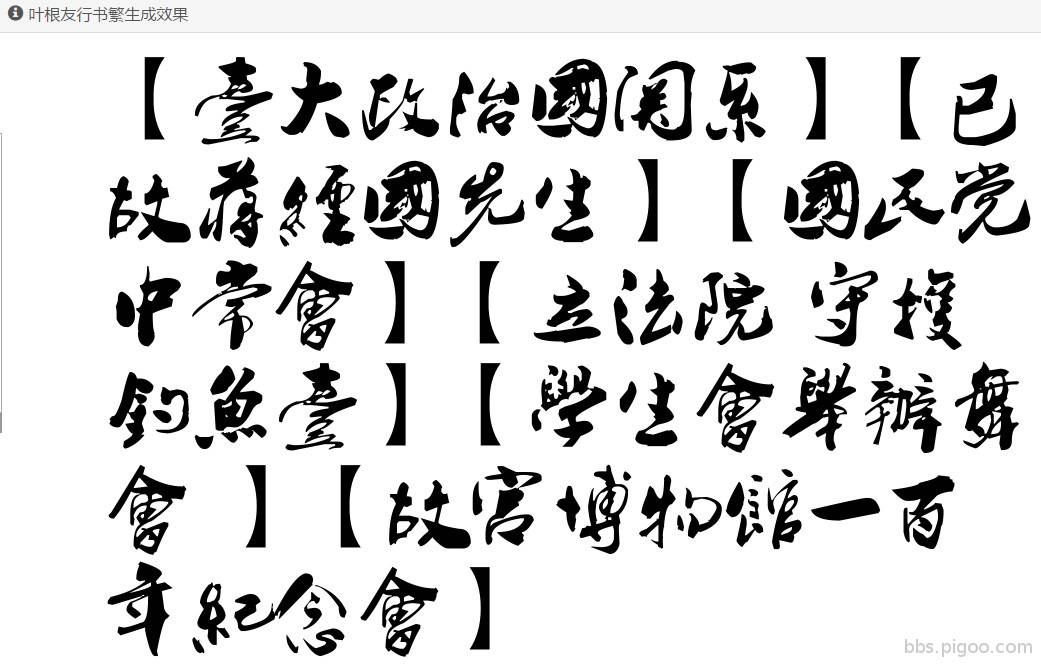 叶根友行书繁生成效果
【臺大政治國関系】【已
故蔣經國先生】【國民党
中常會】【立法院 守擭
釣魚臺】【學生會舉辦舞
會 】【故宮博物館一百
年紀念會】
bbs.pigoo.com